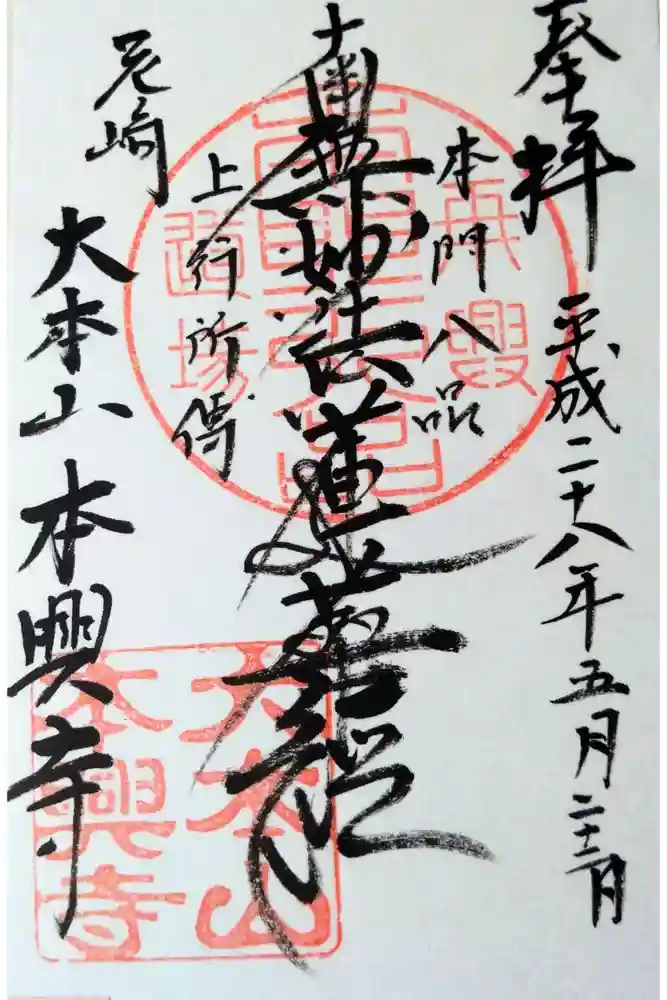 奉拝 平成二十八年五月二十二日
本門八品
南無妙法蓮華経
上行所傳
尼崎
大本山 本興寺
再興
道場
大本山
本興寺